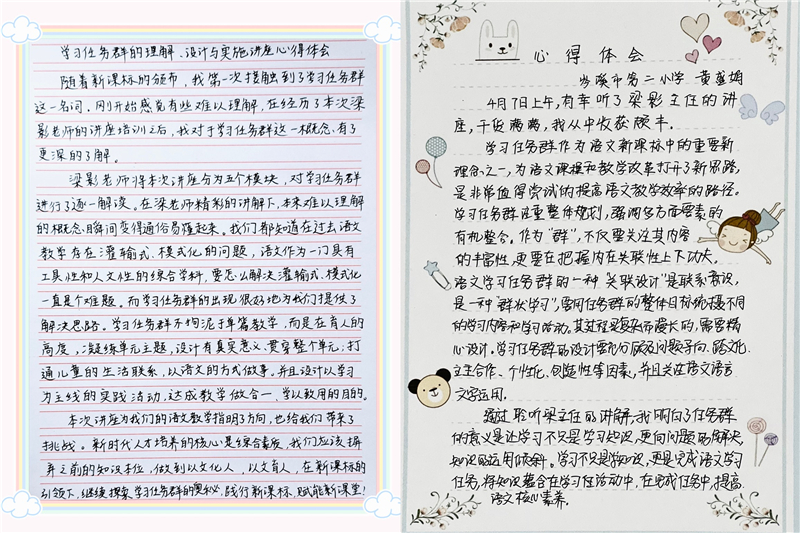 学习任务群的理解、设计与实施讲座心得体会
随着新课标的颁布，我第一次接触到了学习任务群
这一名词。刚开始感觉有些难以理解，在经历了本次梁
影老师的讲座培训之后，我对于学习任务群这一概念，有了
更深的了解。
梁影老师将本次讲座分为五个模块，对学习任务群
进行了逐一解读。在梁老师精彩的讲解下，本来难以理解
的概念，瞬间变得通俗易懂起来。我们都知道在过去语文
教学存在灌输式、模式化的问题，语文作为一门具有
工具性和人文性的综合学科，要怎么解决灌输式、模式化
一直是个难题。而学习任务群的出现很好地为我们提供了
解决思路。学习任务群不拘泥于单篇教学，而是在育人的
高度，凝练单元主题，设计有真实意义、贯穿整个单元；打
通儿童的生活联系，以语文的方式做事。并且设计以学习
为主线的实践活动，达成教学做合一，学以致用的目的。
本次讲座为我们的语文教学指明了方向，也给我们带来了
挑战。新时代人才培养的核心是综合素质，我们应该摒
弃之前的知识本位，做到以文化人，以文育人，在新课标的
引领下，继续探索学习任务群的奥秘，践行新课标，赋能新课堂！
心得体会
岑溪市第二小学 黄
4月7日上午，有幸听了梁影主任的讲
座，干货满满，我从中收获颇丰。
学习任务群作为语文新课标中的重要新
理念之一，为语文课程和教学改革打开了新思路，
是非常值得尝试的提高语文教学效率的路径。
学习任务群注重整体规划，强调多方面要素的
有机整合。作为“群”，不仅要关注其内容
的丰富性，更要在把握内在关联性上下功夫。
语文学习任务群的一种“关联设计”是联系意识，
是一种“群状学习”，要用任务群的整体目标统摄不同
的学习内容和学习活动。其过程是复杂而漫长的，需要精
心设计。学习任务群的设计要充分顾及问题导向、跨文化、
自主合作、个性化、创造性等因素，并且关注语文语言
文字运用。
通过聆听梁主任的讲解，我明白了任务群
的意义是让学习不只是学习知识，更向问题的解决
知识的运用倾斜。学习不只是找知识，更是完成语文学习
任务，将知识蕴含在学习任活动中，在完成任务中，提高
语文核心素养。